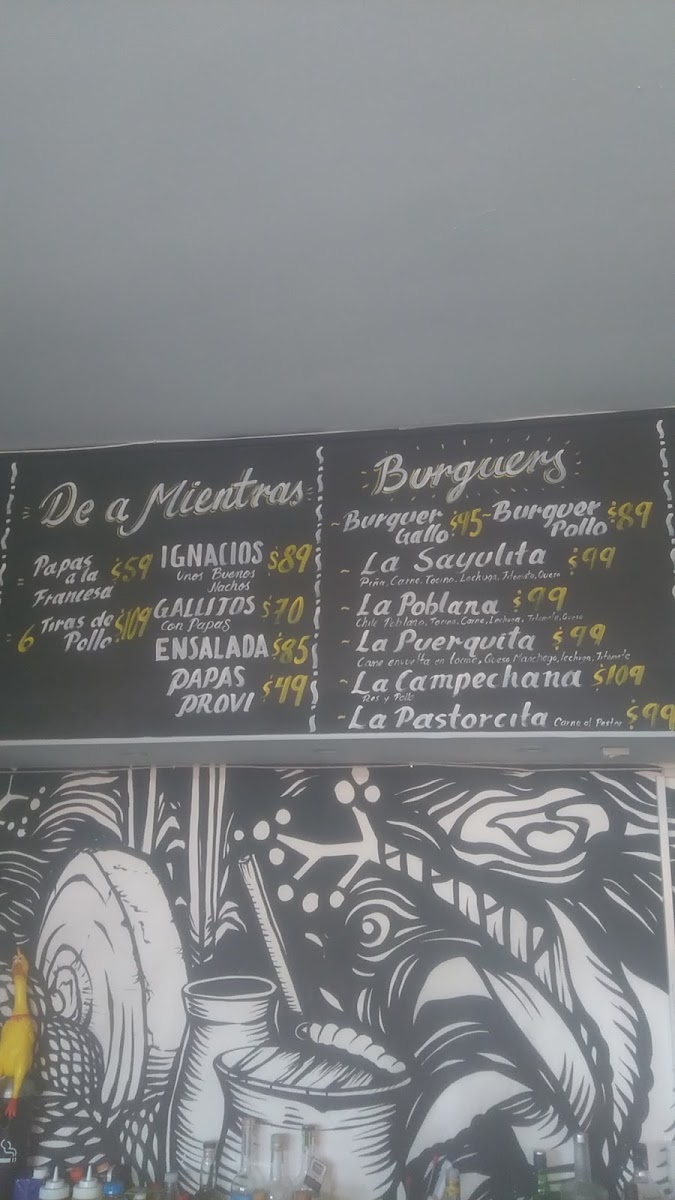 De a Mientras
Papas
a la
Francesa
$59
6 Tiras de
Pollo
$109
IGNACIOS $89
Unos Buenos
Nachos
GALLITOS $70
con Papas
ENSALADA $85
PAPAS
PROVI
$49
Burguers
~Burguer
Gallo
$95
~Burguer
Pollo
$89
~ La Sayulita $99
Piña, Carne, Tocino, Lechuga, Jitomate, Queso
~ La Poblana $99
Chile Poblano, Tocino, Carne, Lechuga, Jitomate, Queso
~ La Puerquita $99
Carne envuelta en tocino, Queso Manchego, lechuga, Jitomate
~ La Campechana $109
Res y Pollo
~ La Pastorcita Carne al Pastor $99